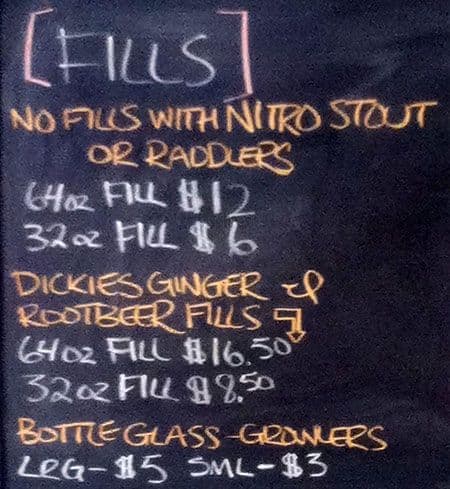 [FILLS]
NO FILLS WITH NITRO STOUT
OR RADDLERS
64oz FILL $12
32oz FILL $6
DICKIES GINGER &
ROOTBEER FILLS ↴
64oz FILL $16.50
32oz FILL $8.50
BOTTLE GLASS-GROWLERS
LRG-$5 SML-$3